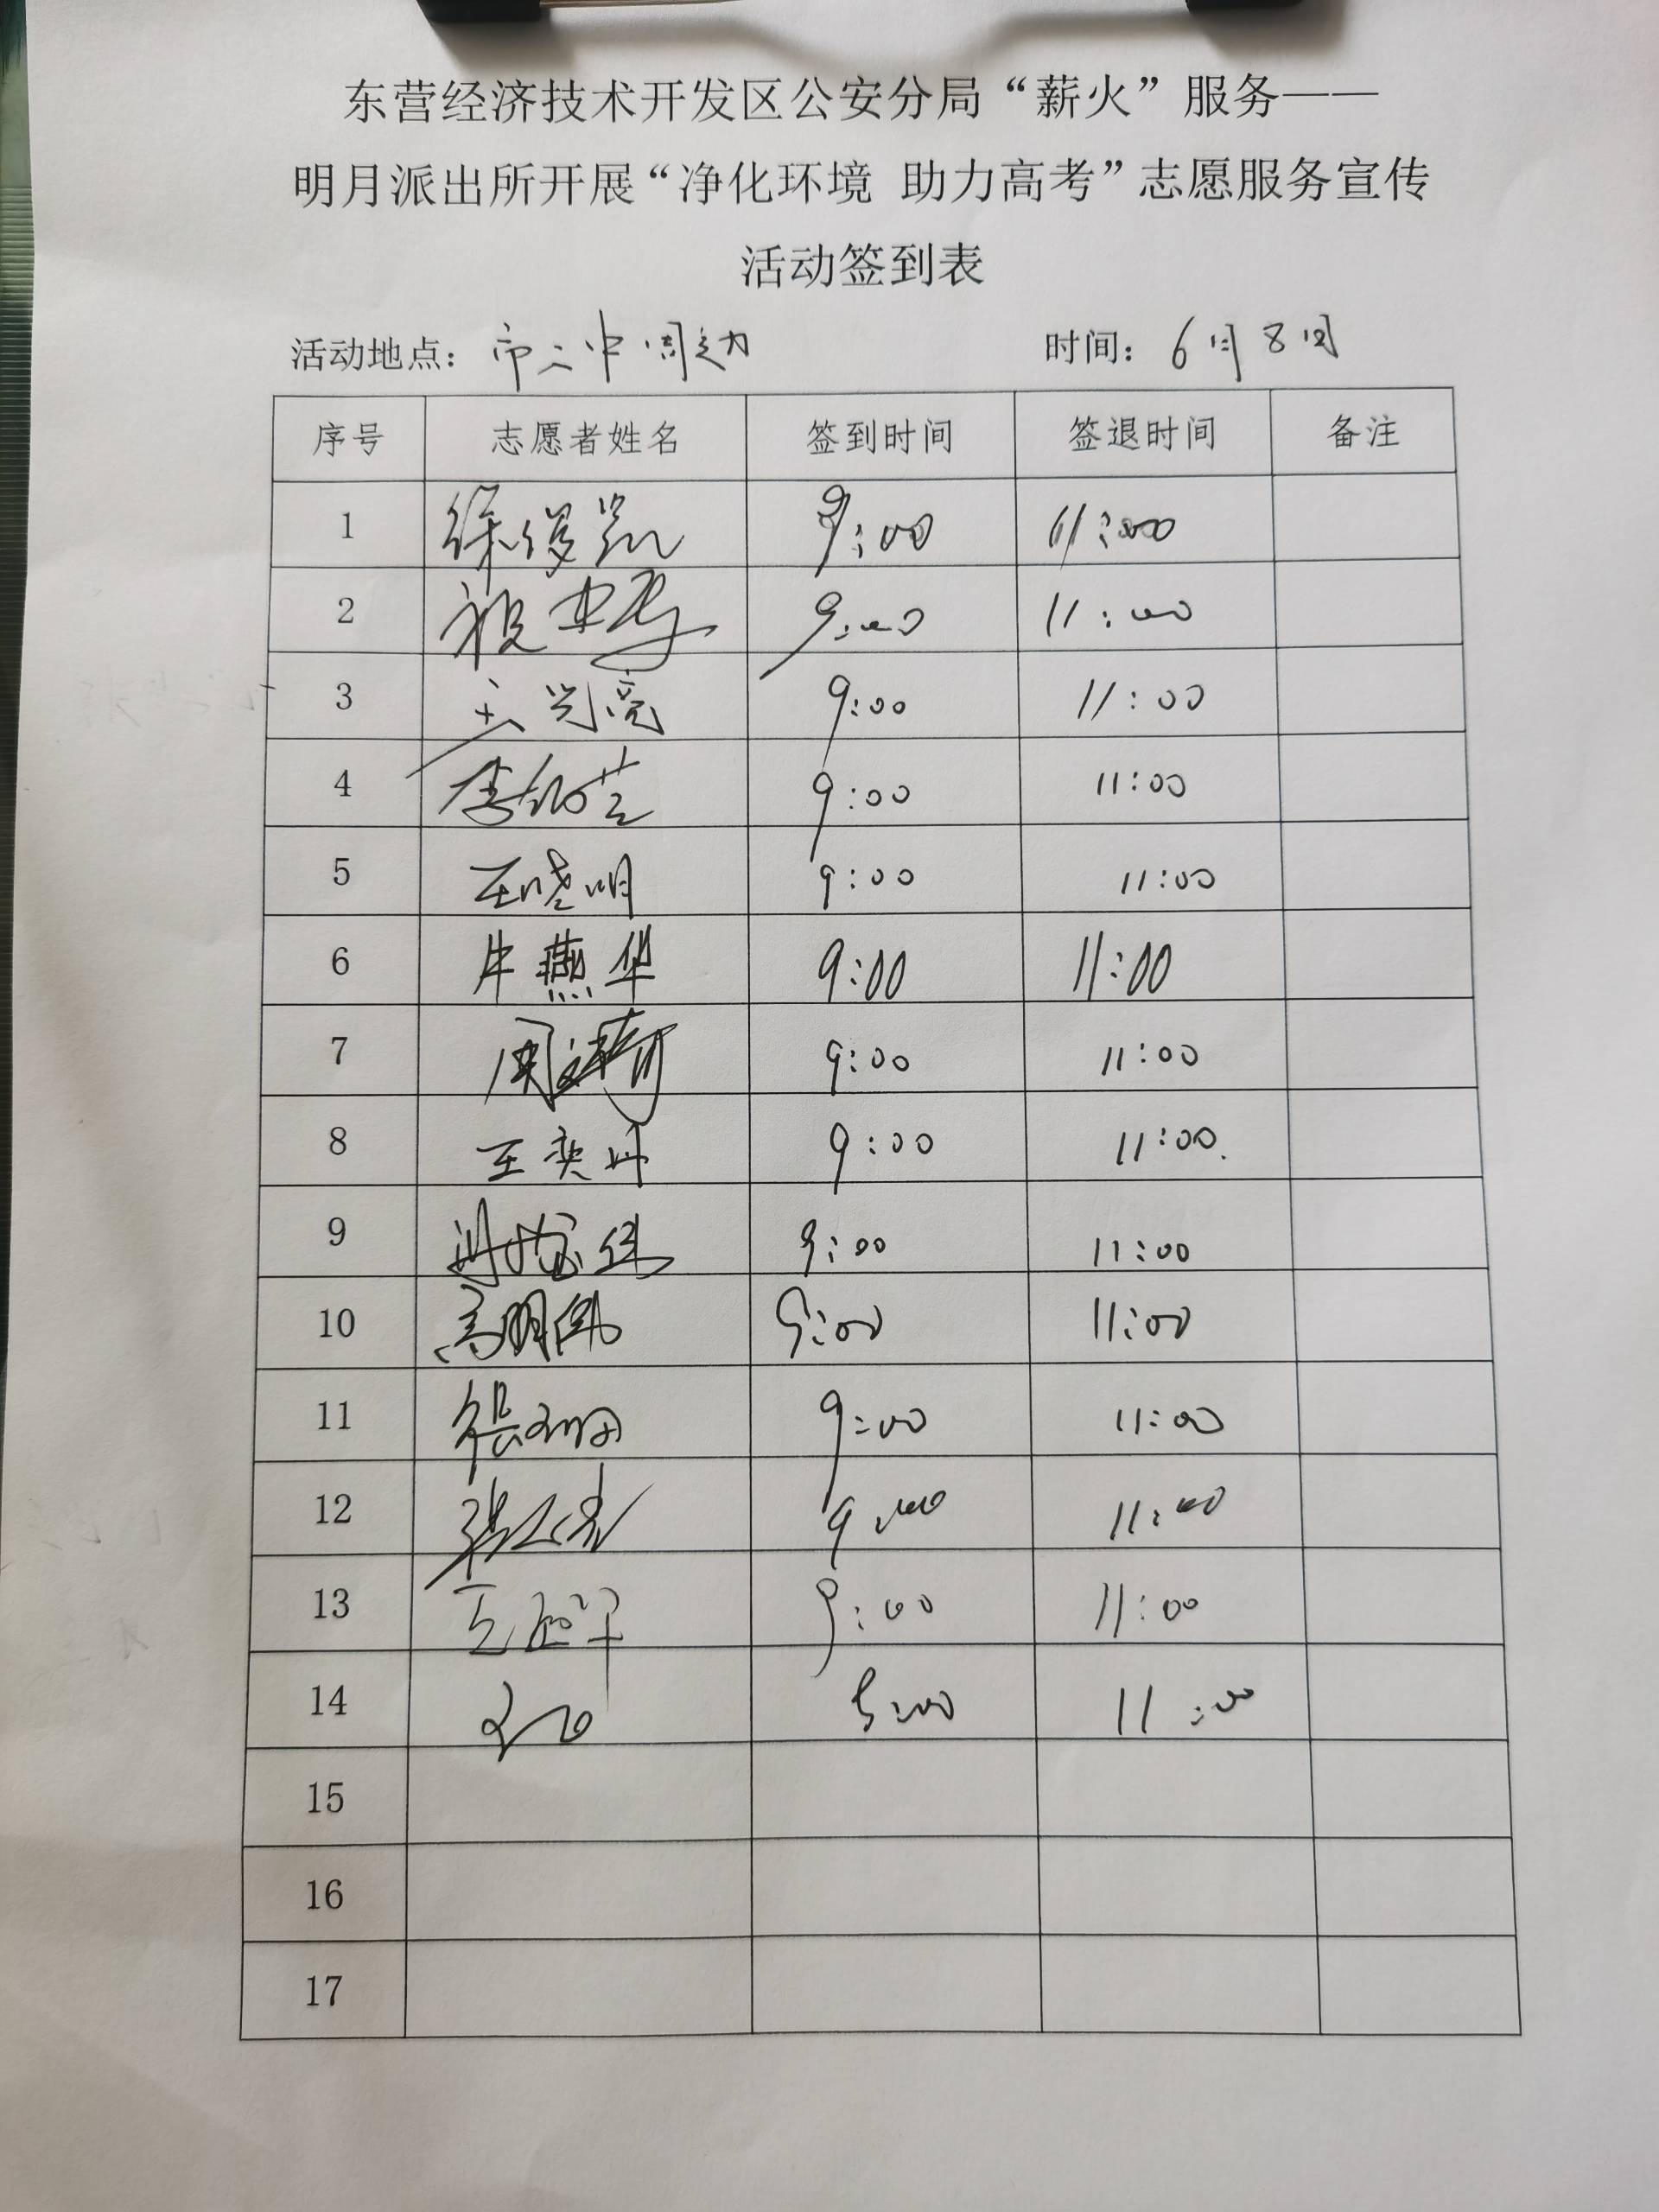 东营经济技术开发区公安分局“薪火”服务——
明月派出所开展“净化环境 助力高考”志愿服务宣传
活动签到表
活动地点： 时间：6月8日
序号 志愿者姓名 签到时间 签退时间 备注
1 徐俊凯 9:00 11:00
2 9:00 11:00
3 9:00 11:00
4 9:00 11:00
5 王晓明 9:00 11:00
6 牛燕华 9:00 11:00
7 9:00 11:00
8 王奕丹 9:00 11:00
9 9:00 11:00
10 高明伟 9:00 11:00
11 9:00 11:00
12 9:00 11:00
13 9:00 11:00
14 9:00 11:00
15
16
17